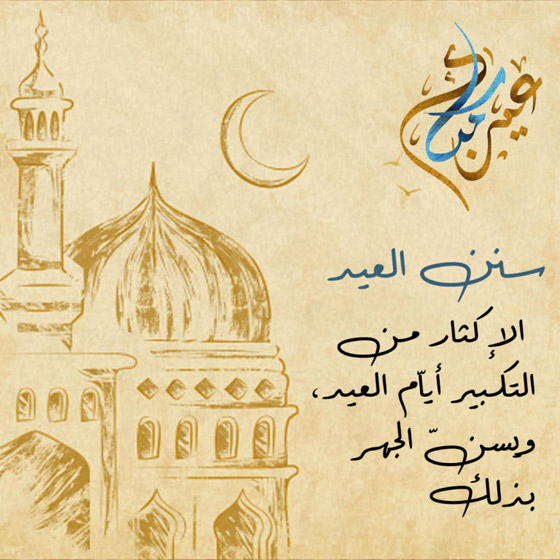 عيد مبارك
سنن العيد
الإكثار من
التكبير أيّام العيد،
ويسنّ الجهر
بذلك